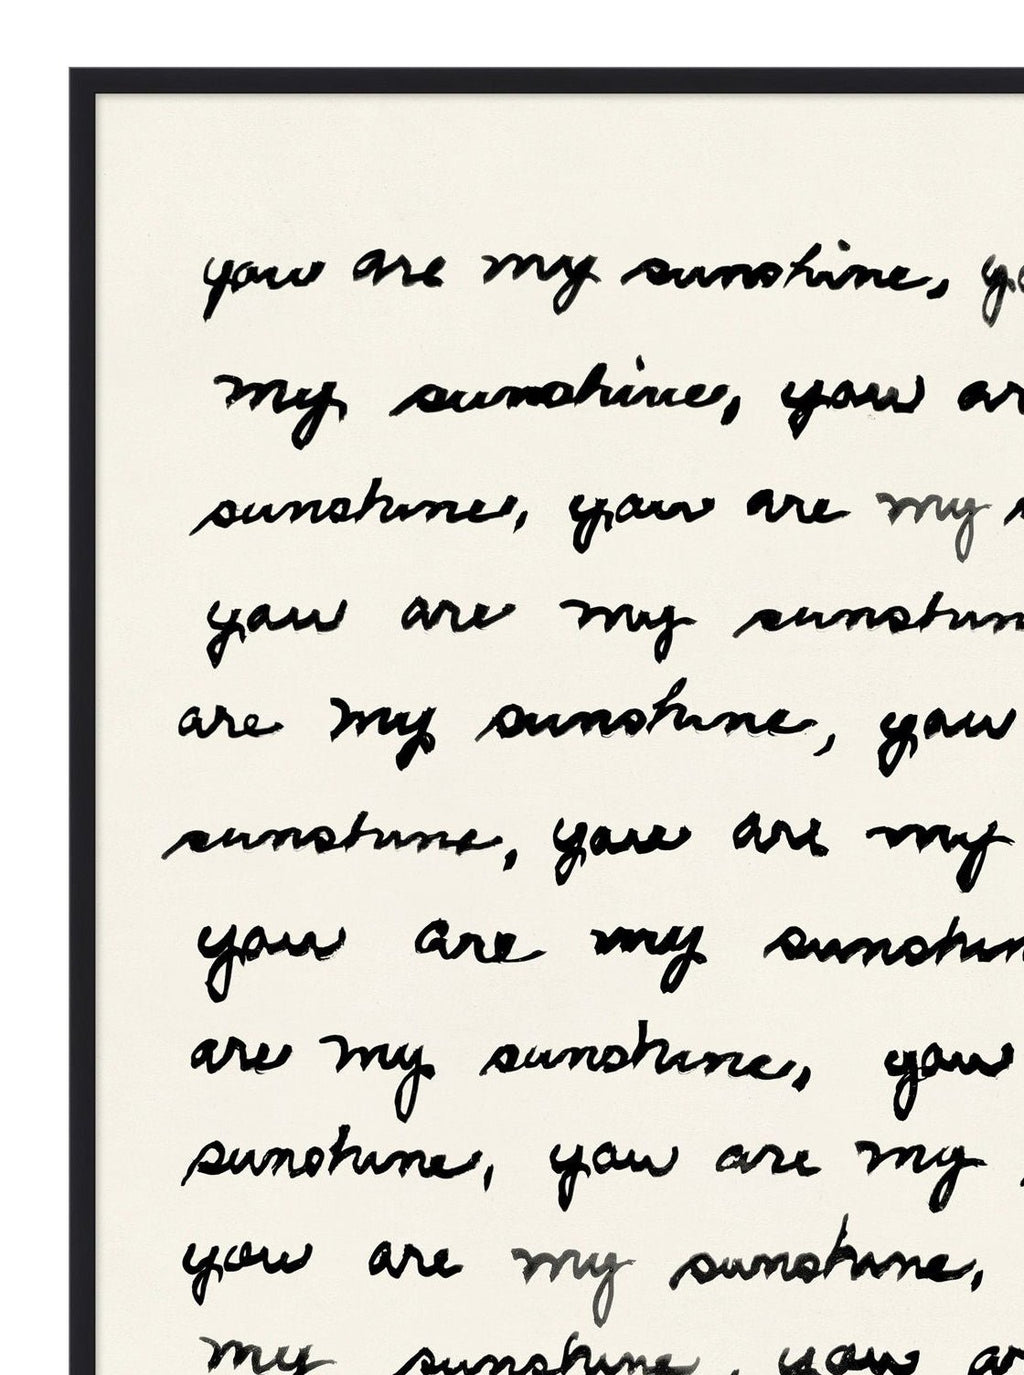 you are my sunshine, yo
my sunshine, you ar
sunshine, you are my s
you are my sunshin
are my sunshine, you
sunshine, you are my
you are my sunshin
are my sunshine, you
sunshine, you are my
you are my sunshine,
my sunshine, you ar